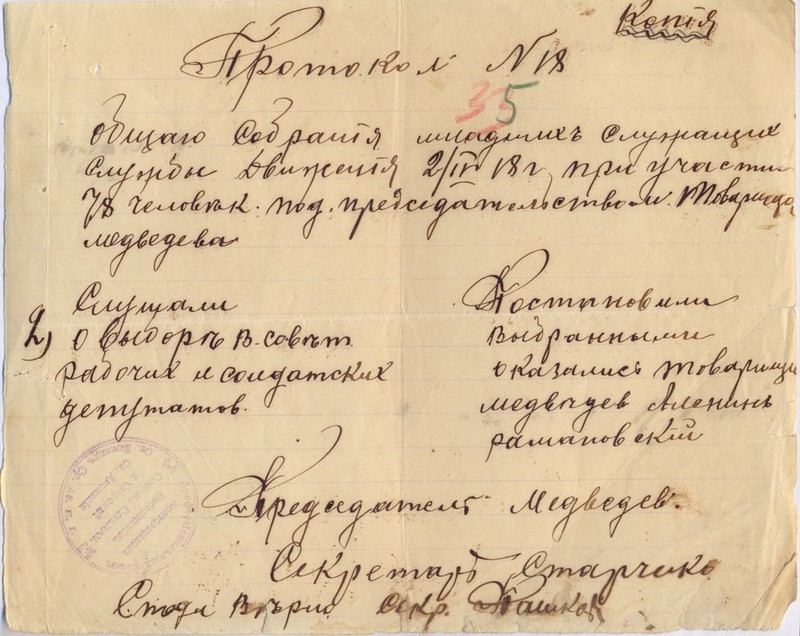 Копія
Протокол N 18
35
общаго собранія младшихъ служащих
службы движенія 2/IV 18 г, при участии
78 человѣк. под. председательством. Товарища
медведева
Слушали
2) о выборѣ в. совѣт.
рабочих и солдатских
депутатов.
Постановили
выбранными
оказались товарищи
медвѣдев Аленинъ
рамановский
Председатель Медведев.
Секретарь Старчико
вѣрно секр. Пашков